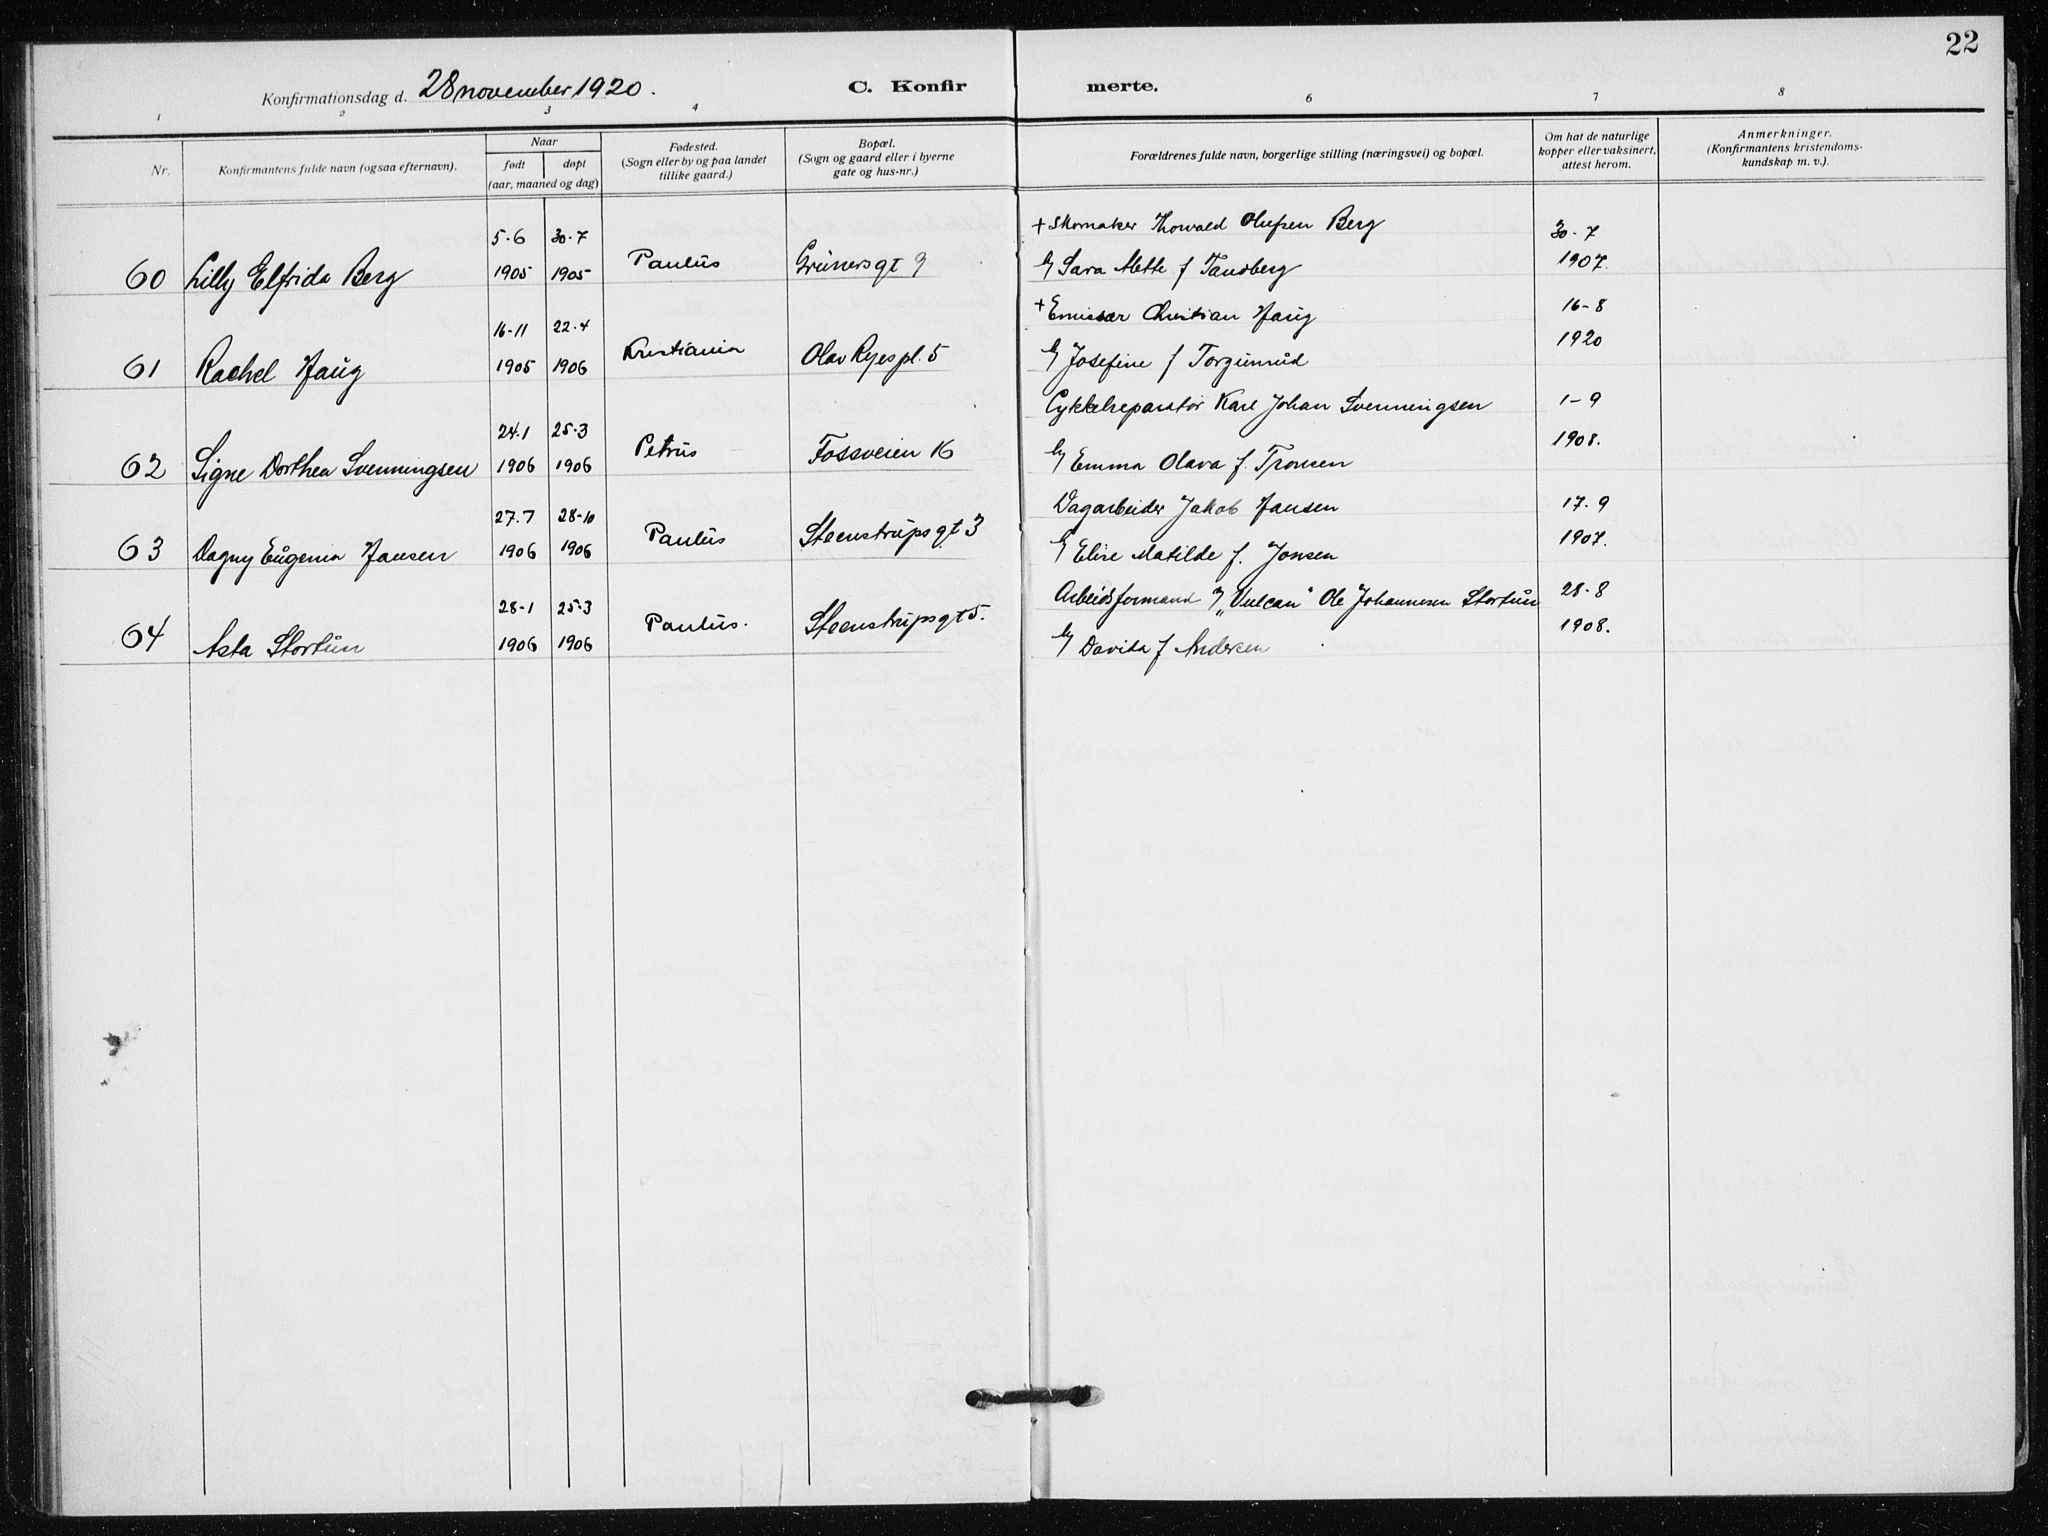 22
Konfirmationsdag d. 28 november 1920.
C. Konfir
merte.
1 2 3 4 6 7 8
Nr.
Konfirmantens fulde navn (ogsaa efternavn).
Naar
født
døpt
(aar, maaned og dag)
Fødested.
(Sogn eller by og paa landet
tillike gaard.)
Bopæl.
(Sogn og gaard eller i byerne
gate og hus-nr.)
Forældrenes fulde navn, borgerlige stilling (næringsvei) og bopæl.
Om hat de naturlige
kopper eller vaksinert,
attest herom.
Anmerkninger.
(Konfirmantens kristendoms-
kundskap m. v.).
5-6 30-7 + Skomaker Thorvald Olufsen Berg 30-7
60 Lilly Elfrida Berg 1905 1905 Paulus Grünersgt 9 og Sara Mette f Tandberg 1907.
16-11 22.4 + Emissær Christian Haug 16-8
61 Rachel Haug 1905 1906 Kristiania Olav Ryespl. 5 og Josefine f Torgunrud 1920
24.1 25.3 Cykkelreparatør Karl Johan Svenningsen 1-9
62 Signe Dorthea Svenningsen 1906 1906 Petrus Fossveien 16 og Emma Olava f. Tronsen 1908.
27.7 28-10 Dagarbeider Jakob Hansen 17.9
63 Dagny Eugenia Hansen 1906 1906 Paulus Steenstrupsgt 3 og Elise Matilde f. Jonsen 1907.
28-1 25.3 Arbeidsformand v/ „Vulcan" Ole Johannesen Stortun 28-8
64 Asta Stortun 1906 1906 Paulus. Steenstrupsgt 5. og Davida f Andersen 1908.